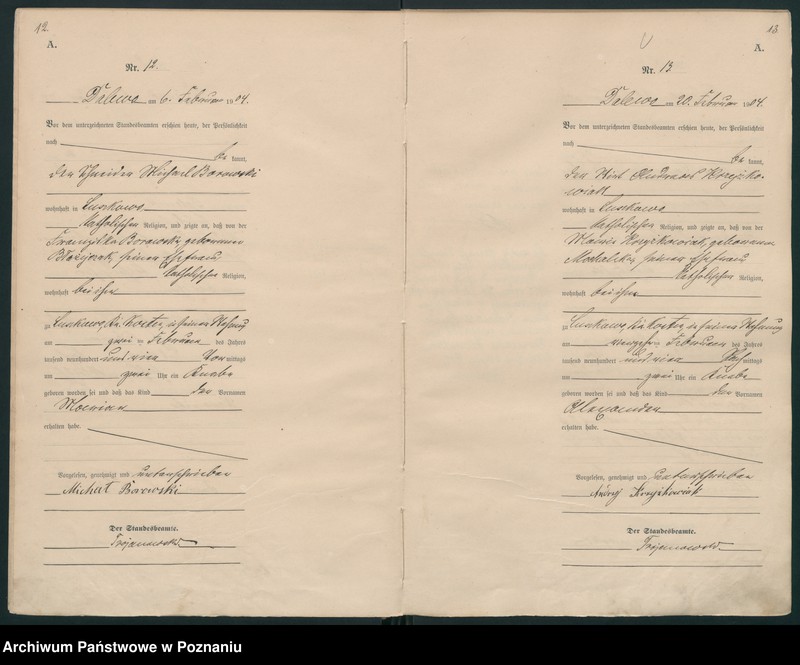 12.
A.
Nr. 12.
Dalewo am 6. Februar 1904.
Vor dem unterzeichneten Standesbeamten erschien heute, der Persönlichkeit
nach
be kannt,
der Schneider Michael Borowski
wohnhaft in Luszkowo
katholischer Religion, und zeigte an, daß von der
Franziska Borowski, geborenen
seiner Ehefrau
katholischer Religion,
wohnhaft bei ihm
zu Luszkowo, Kr. Kosten, in seiner Wohnung
am zwei ten Februar des Jahres
tausend neunhundert und vier Vor mittags
um zwei Uhr ein Knabe
geboren worden sei und daß das Kind den Vornamen
erhalten habe.
Vorgelesen, genehmigt und unterschrieben
Michał Borowski
Der Standesbeamte.
Trojanowski
13
A.
Nr. 13
Dalewo am 20. Februar 1904.
Vor dem unterzeichneten Standesbeamten erschien heute, der Persönlichkeit
nach
be kannt,
der Wirt Andreas Krzyżko-
wiak
wohnhaft in Luszkowo
katholischer Religion, und zeigte an, daß von der
Krzyżkowiak, geborenen
seiner Ehefrau
katholischer Religion,
wohnhaft bei ihm
zu Luszkowo, Kr. Kosten, in seiner Wohnung
am vierzehn ten Februar des Jahres
tausend neunhundert und vier Nach mittags
um zwei Uhr ein Knabe
geboren worden sei und daß das Kind den Vornamen
Alexander
erhalten habe.
Vorgelesen, genehmigt und unterschrieben
Andrzej Krzyżkowiak
Der Standesbeamte.
Trojanowski
Archiwum Państwowe w Poznaniu